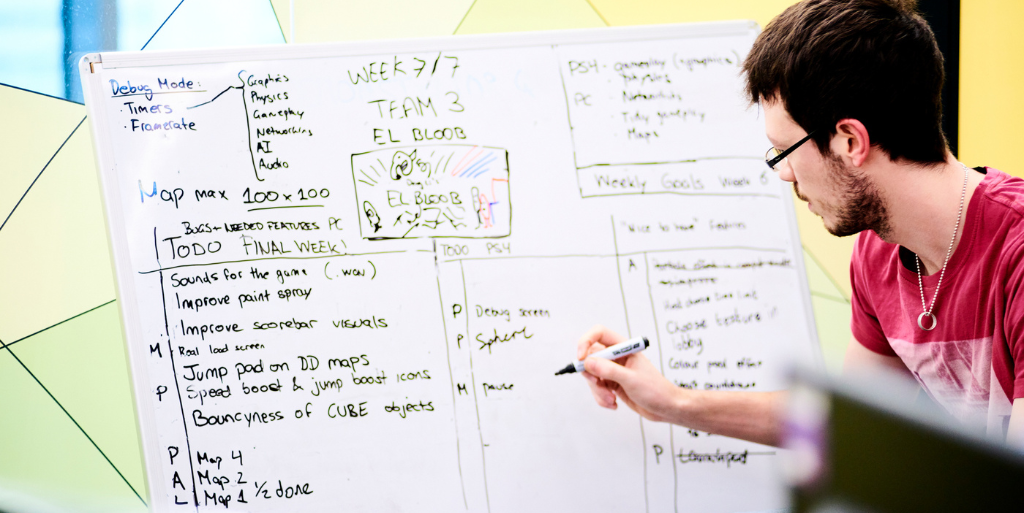 Debug Mode:
· Timers
· Framerate
Graphics
Physics
Gameplay
Networking
AI
Audio
Map max 100x100
WEEK 7/7
TEAM 3
EL BLOOB
EL BLOOB
PS4 - Gameplay (
· Physics
PC · 
· Tidy gameplay
· Maps
Weekly Goals Week 6
BUGS + NEEDED FEATURES PC
TODO FINAL WEEK!
Sounds for the game (.wav)
Improve paint spray
Improve scorebar visuals
M Real load screen
Jump pad on DD maps
P Speed boost & jump boost icons
Bouncyness of CUBE objects
P Map 4
A Map 2
L Map 1 ½ done
TODO PS4
P Debug screen
P Sphere
M pause
"Nice to have"
A
Choose texture
lobby
P